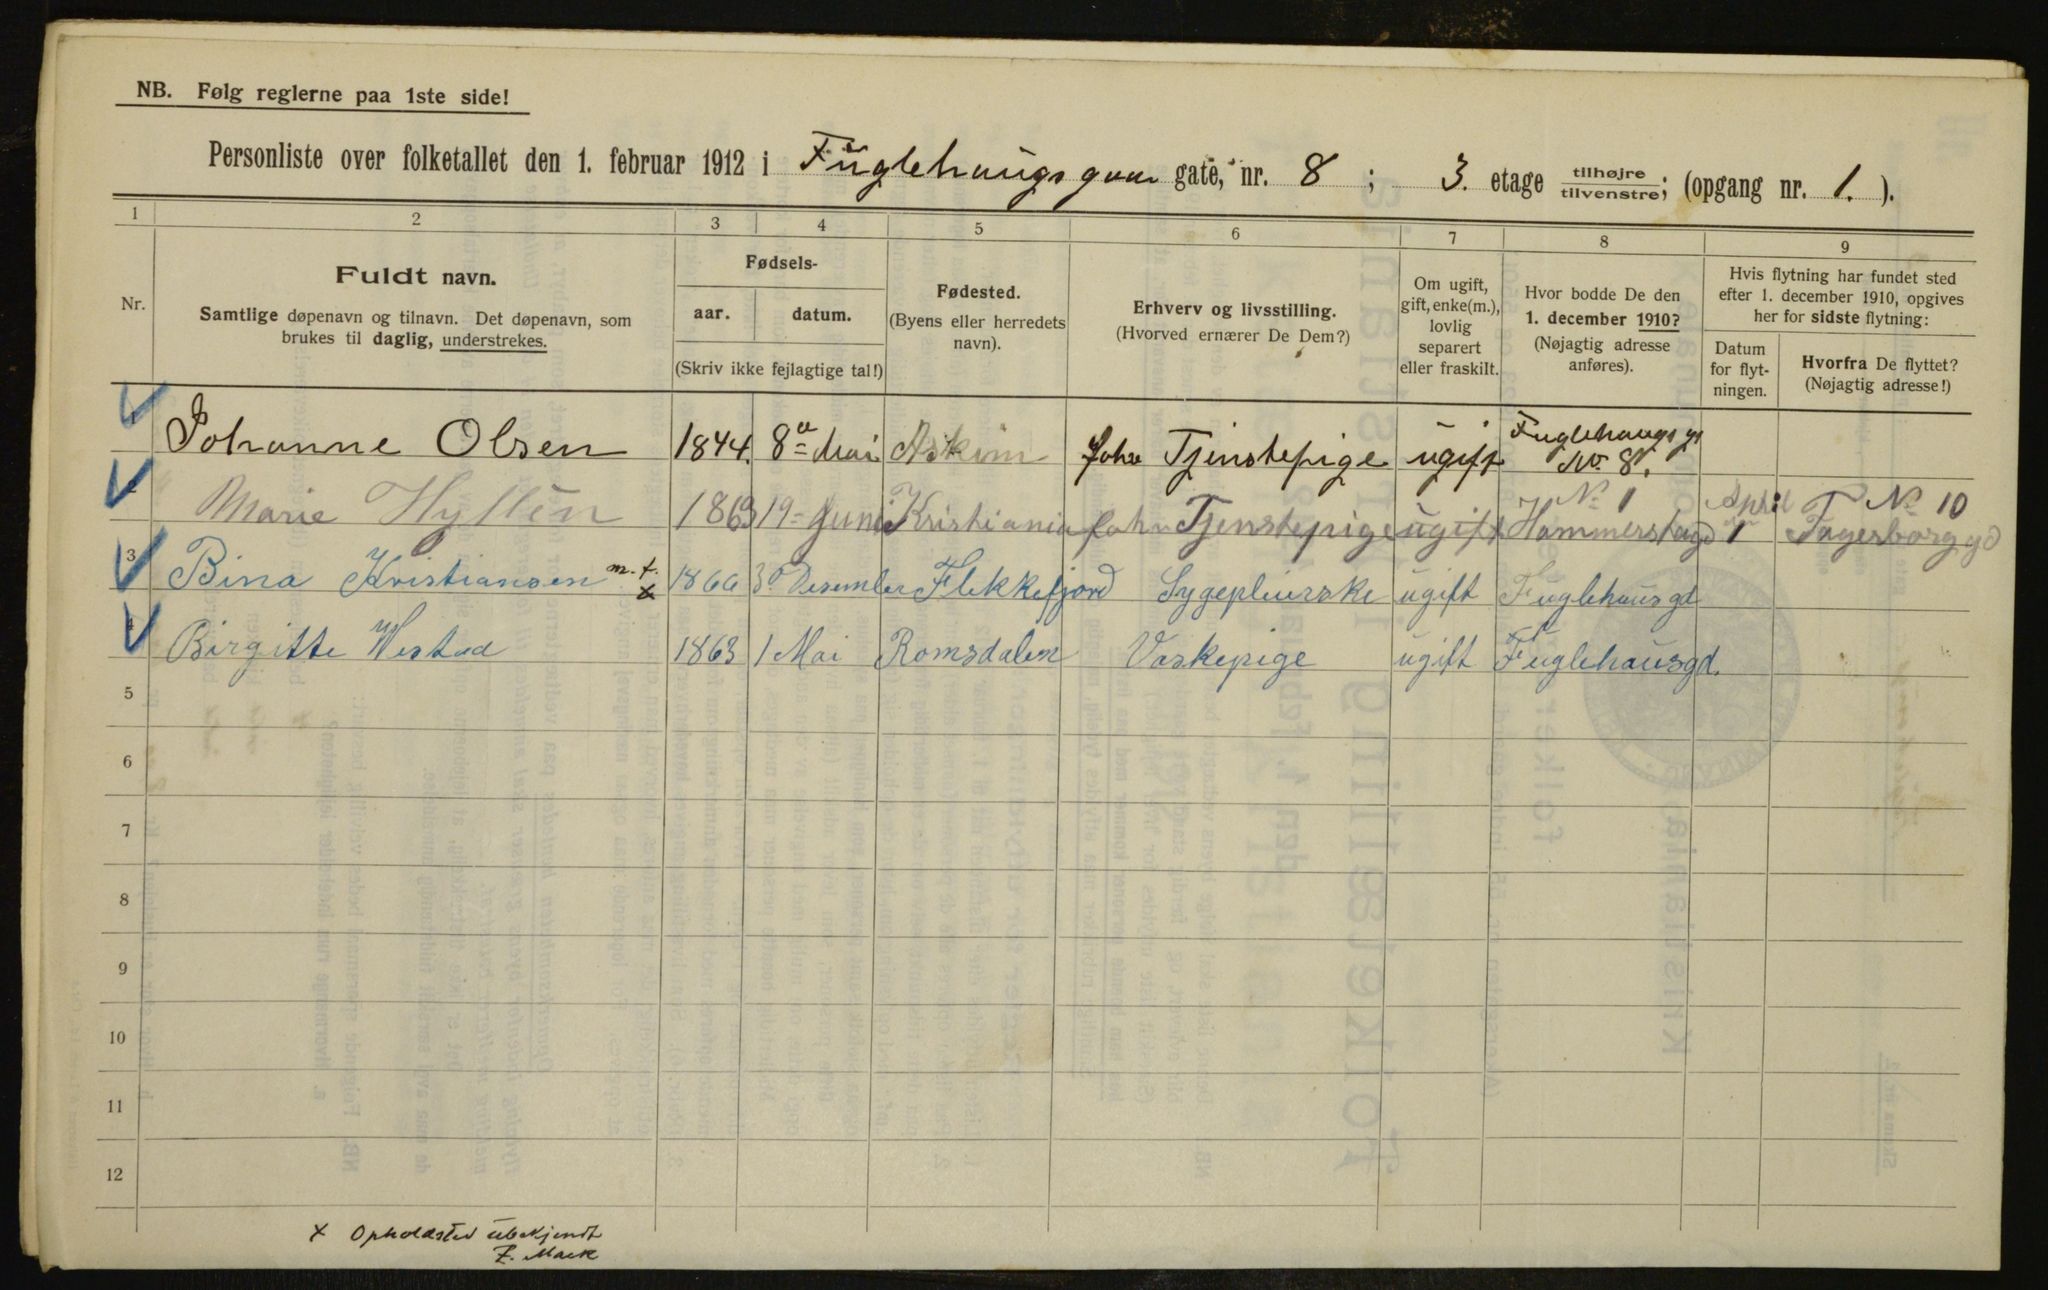 NB. Følg reglerne paa 1ste side!
Personliste over folketallet den 1. februar 1912 i Fuglehaugsgaar gate, nr. 8; 3. etage tilhøjre tilvenstre; (opgang nr. 1.).
1 2 3 4 5 6 7 8 9
Nr.
Fuldt navn.
Samtlige døpenavn og tilnavn. Det døpenavn, som
brukes til daglig, understrekes.
Fødsels-
aar. datum.
(Skriv ikke fejlagtige tal!)
Fødested.
(Byens eller herredets
navn).
Erhverv og livsstilling.
(Hvorved ernærer De Dem?)
Om ugift,
gift, enke(m.),
lovlig
separert
eller fraskilt.
Hvor bodde De den
1. december 1910?
(Nøjagtig adresse
anføres).
Hvis flytning har fundet sted
efter 1. december 1910, opgives
her for sidste flytning:
Datum
for flyt-
ningen.
Hvorfra De flyttet?
(Nøjagtig adresse!)
Johanne Olsen 1844. 8 Mai Askim Tjenstepige ugift Fuglehaugsgs No 8.
2 Marie Hyllén 1863 19 Juni Kristiania Tjenstepige ugift Hammerstagd No 1 April 1 Fagerborggd No 10
3 Bina Kristiansen m. t. x 1866 3 Desember Flekkefjord Sygepleierske ugift Fuglehausgd
4 Birgitte Westad 1863 1 Mai Romsdalen Vaskepige ugift Fuglehausgd.
5
6
7
8
9
10
11
12
x Opholdsted ubekjendt
Mack